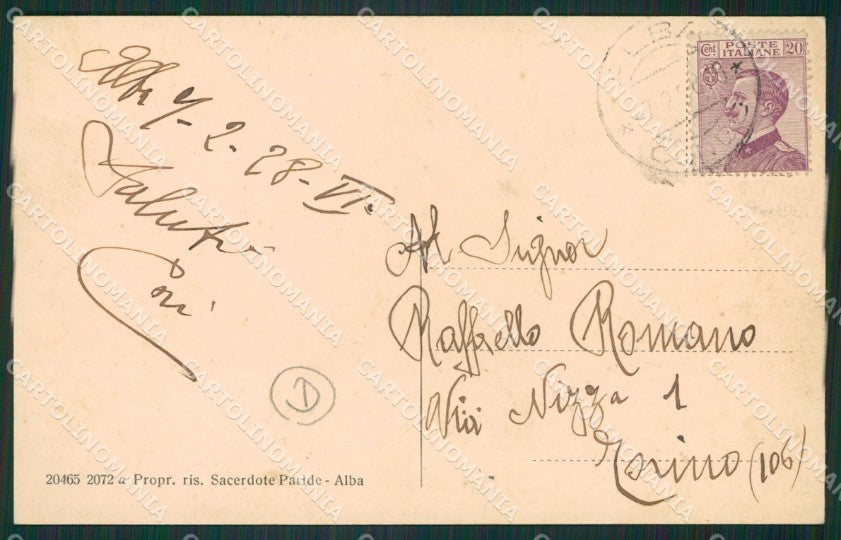 Alba 9-2-28-VI.
Saluti
Al Signor
Raffaello Romano
Via Nizza 1
Torino (106)
POSTE
ITALIANE
Cent 20
ALBA
1
20465 2072 a Propr. ris. Sacerdote Paride - Alba
CARTOLINOMANIA